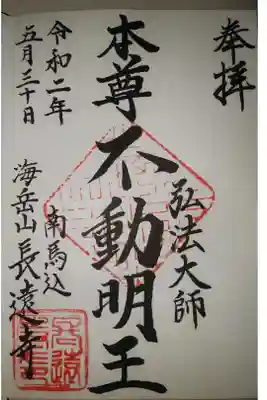 奉拝
弘法大師
本尊不動明王
南馬込
海岳山長遠寺
令和二年
五月三十日